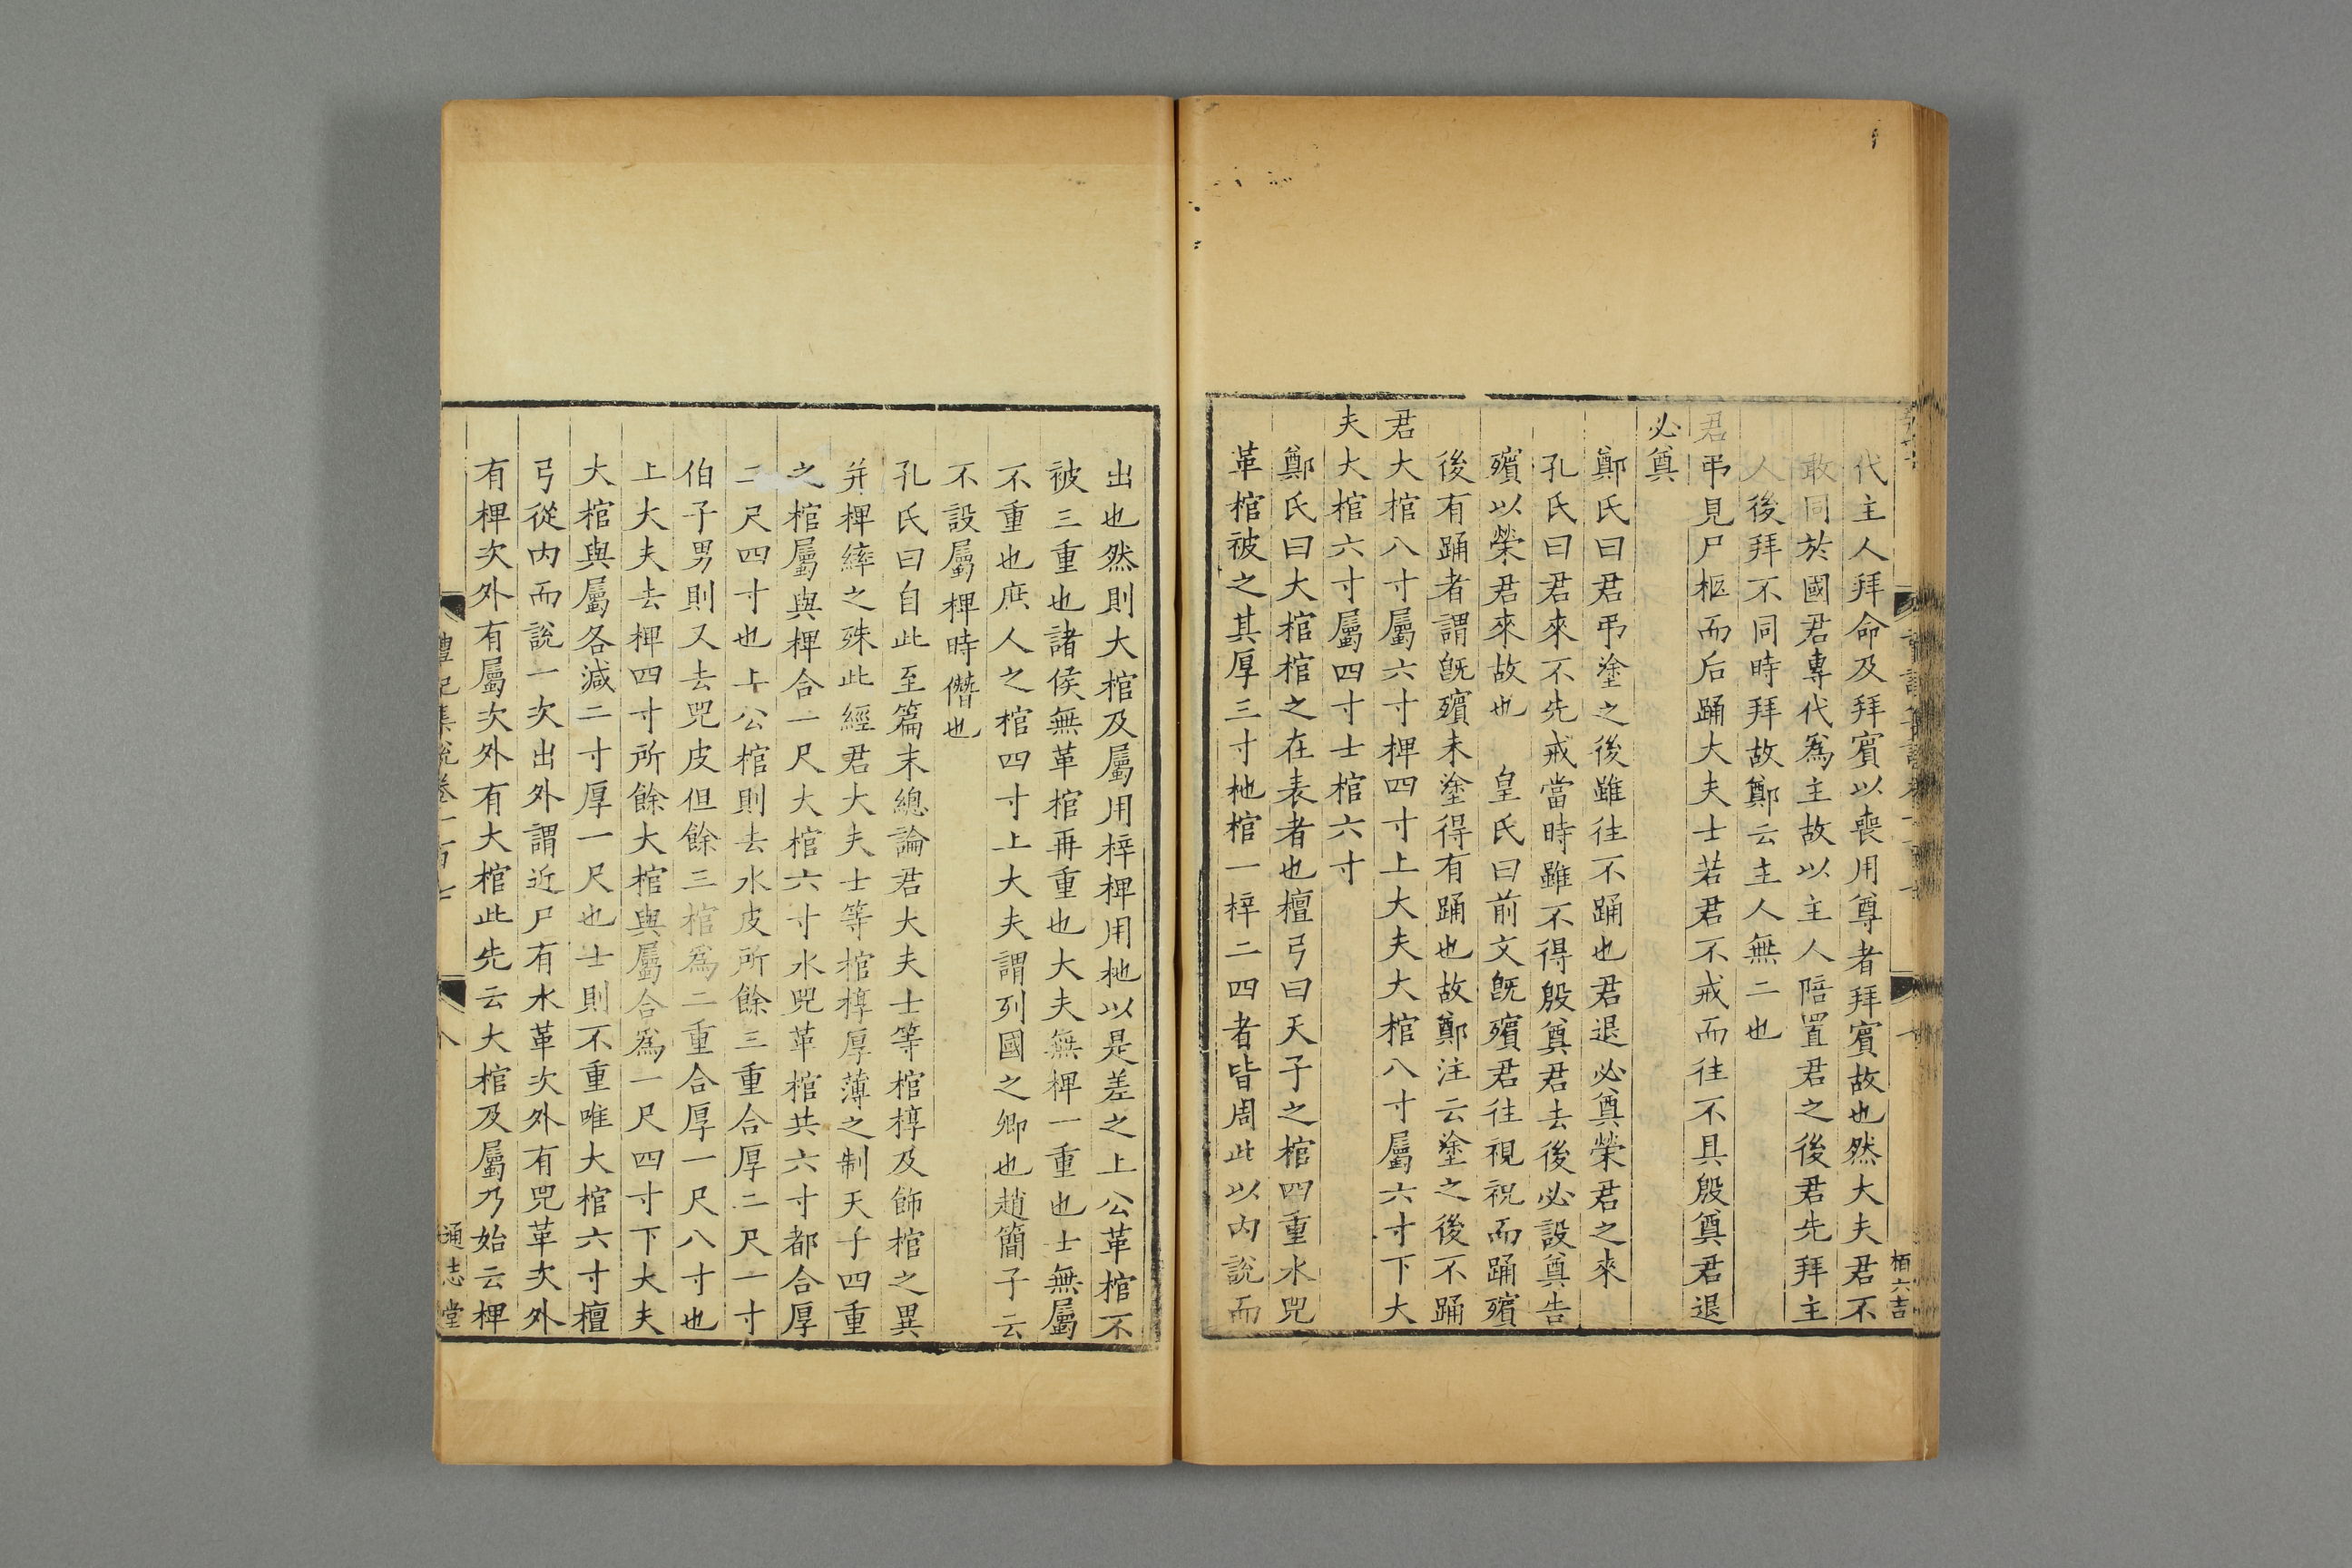 代主人拜命及拜賓以喪用尊者拜賓故也然大夫君不
敢同於國君專代爲主故以主人陪置君之後君先拜主
人後拜不同時拜故鄭云主人無二也
君弔見尸柩而后踊大夫士若君不戒而往不具殷奠君退
必奠
鄭氏曰君弔塗之後雖往不踊也君退必奠榮君之來
孔氏曰君來不先戒當時雖不得殷奠君去後必設奠告
殯以榮君來故也　皇氏曰前文旣殯君往視祝而踊殯
後有踊者謂旣殯未塗得有踊也故鄭注云塗之後不踊
君大棺八寸屬六寸椑四寸上大夫大棺八寸屬六寸下大
夫大棺六寸屬四寸士棺六寸
鄭氏曰大棺棺之在表者也檀弓曰天子之棺四重水兕
革棺被之其厚三寸杝棺一梓二四者皆周此以內說而
出也然則大棺及屬用梓椑用杝以是差之上公革棺不
被三重也諸侯無革棺再重也大夫無椑一重也士無屬
不重也庶人之棺四寸上大夫謂列國之卿也趙簡子云
不設屬椑時僭也
孔氏曰自此至篇末總論君大夫士等棺椁及飾棺之異
并椑繂之殊此經君大夫士等棺椁厚薄之制天子四重
之棺屬與椑合一尺大棺六寸水兕革棺共六寸都合厚
二尺四寸也上公棺則去水皮所餘三重合厚二尺一寸
伯子男則又去兕皮但餘三棺爲二重合厚一尺八寸也
上大夫去椑四寸所餘大棺與屬合爲一尺四寸下大夫
大棺與屬各減二寸厚一尺也士則不重唯大棺六寸檀
弓從內而說一次出外謂近尸有水革次外有兕革次外
有椑次外有屬次外有大棺此先云大棺及屬乃始云椑
禮記集說卷一百七
八
通志堂